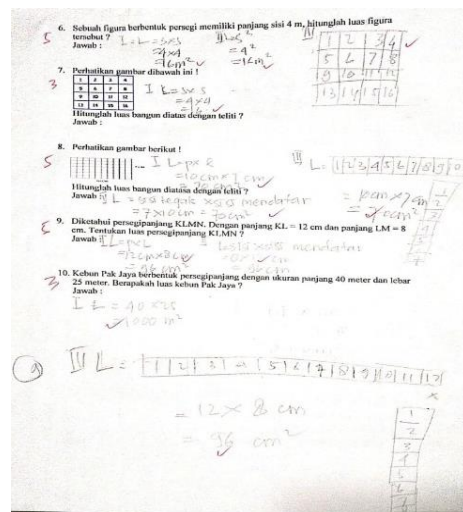 6. Sebuah figura berbentuk persegi memiliki panjang sisi 4 m, hitunglah luas figura
tersebut ?
Jawab :
I L = s x s
= 4 x 4
= 16 m²
= 4²
= 16 m²
1 2 3 4
5 6 7 8
9 10 11 12
13 14 15 16
5
7. Perhatikan gambar dibawah ini !
1 2 3 4
5 6 7 8
9 10 11 12
13 14 15 16
I L = s x s
= 4 x 4
3
Hitunglah luas bangun diatas dengan teliti ?
Jawab :
8. Perhatikan gambar berikut !
5
I L = p x l
= 10 cm x 7 cm
= 70 cm²
III L = 1 2 3 4 5 6 7 8 9 10
= 10 cm x 7 cm
= 70 cm²
Hitunglah luas bangun diatas dengan teliti ?
Jawab
L = sisi tegak x sisi mendatar
= 7 x 10 cm = 70 cm²
5
9. Diketahui persegipanjang KLMN. Dengan panjang KL = 12 cm dan panjang LM = 8
cm. Tentukan luas persegipanjang KLMN ?
Jawab
L = p x l
= 12 cm x 8 cm
= 96 cm²
mendatar
3
10. Kebun Pak Jaya berbentuk persegipanjang dengan ukuran panjang 40 meter dan lebar
25 meter. Berapakah luas kebun Pak Jaya ?
Jawab :
I L = 40 x 25
= 1000 m²
9
III L = 1 2 3 4 5 6 7 8 9 10 11 12
x
= 12 x 8 cm
= 96 cm²
1
2
3
4
5
6